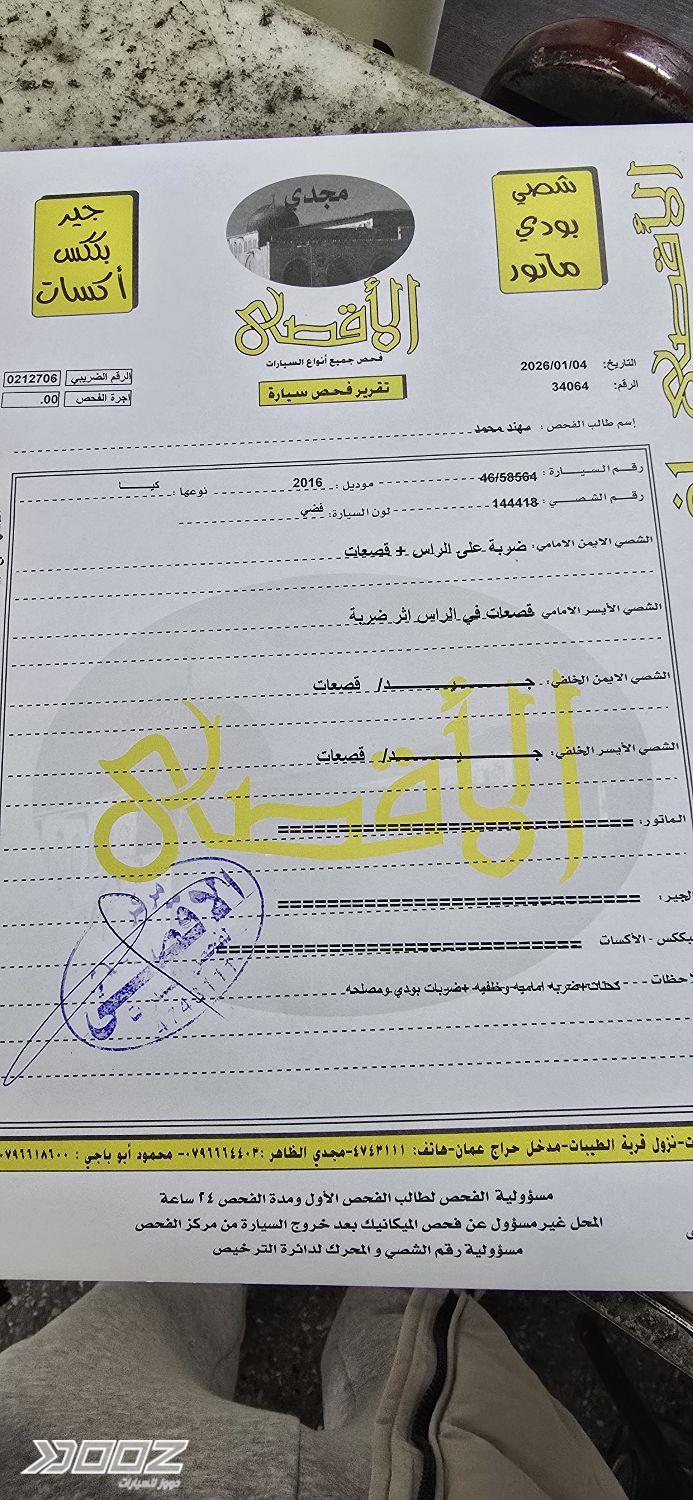 شصي
بودي
ماتور
مجدي
الأقصى
فحص جميع أنواع السيارات
تقرير فحص سيارة
جير
بككس
أكسات
الأقصى
التاريخ: 2026/01/04
الرقم: 34064
الرقم الضريبي 0212706
أجرة الفحص .00
إسم طالب الفحص : مهند محمد
رقم السيارة : 46/58564 موديل : 2016 نوعها : كيا
رقم الشصي : 144418 لون السيارة: فضي
الشصي الايمن الامامي: ضربة على الراس + قصعات
الشصي الأيسر الامامي قصعات في الراس اثر ضربة
الشصي الايمن الخلفي: جيد/ قصعات
الشصي الأيسر الخلفي: جيد/ قصعات
الماتور:
الجير:
بككس - الأكسات
لاحظات - +ضربه اماميه وخلفيه +ضربات بودي ومصلحه
الأقصى
4743111
ت-نزول قرية الطيبات-مدخل حراج عمان-هاتف: ٤٧٤٣١١١-مجدي الظاهر :٠٧٩٦٦٦٤٤٠٣- محمود أبو باجي : ٠٧٩٦٦١٨٦٠٠
مسؤولية الفحص لطالب الفحص الأول ومدة الفحص ٢٤ ساعة
المحل غير مسؤول عن فحص الميكانيك بعد خروج السيارة من مركز الفحص
مسؤولية رقم الشصي و المحرك لدائرة الترخيص
DOOZ
دووز للسيارات